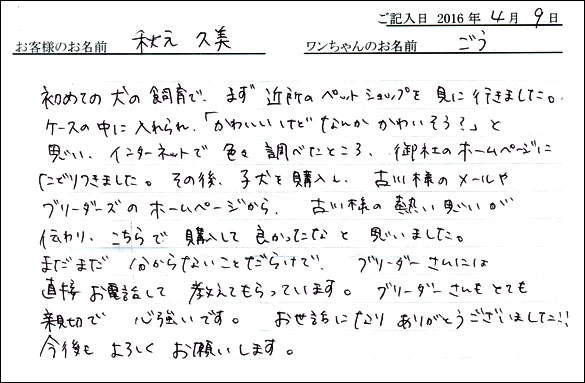 ご記入日 2016 年 4 月 9 日
お客様のお名前 秋元 久美 ワンちゃんのお名前 ごう
初めての犬の飼育で、まず近所のペットショップを見に行きました。
ケースの中に入れられ、「かわいいけどなんかかわいそう?」と
思い、インターネットで色々調べたところ、御社のホームページに
たどりつきました。その後、子犬を購入し、古川様のメールや
ブリーダーズのホームページから、古川様の熱い思いが
伝わり、こちらで購入して良かったなと思いました。
まだまだ分からないことだらけで、ブリーダーさんには
直接お電話して教えてもらっています。ブリーダーさんもとても
親切で心強いです。お世話になりありがとうございました!!
今後もよろしくお願いします。